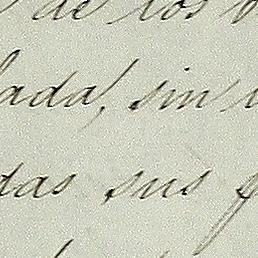 de los
lada, sin
das sus